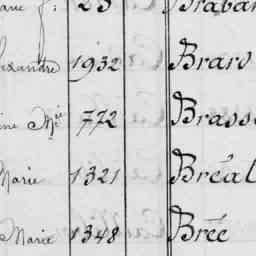 23 Braban
exandre 1932 Brard
ine Mie 772 Brass
Marie 1321 Bréal
Marie 1348 Brée